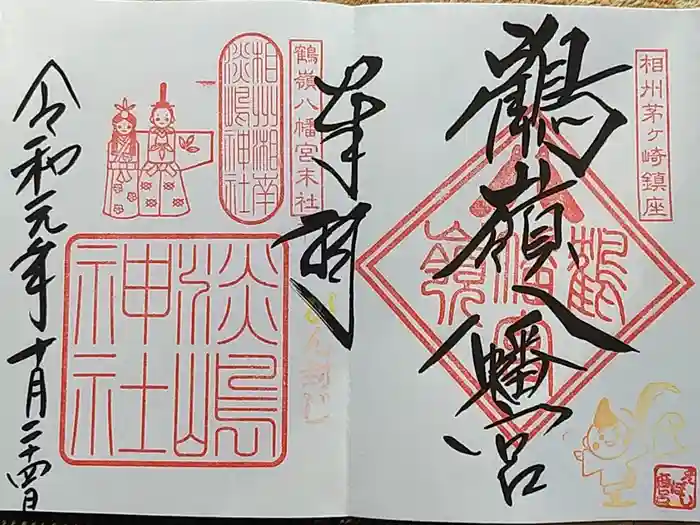 相州茅ヶ崎鎮座
鶴嶺八幡宮
奉拝
鶴嶺八幡宮末社
相州湘南
淡嶋神社
淡嶋
神社
令和元年十月二十四日